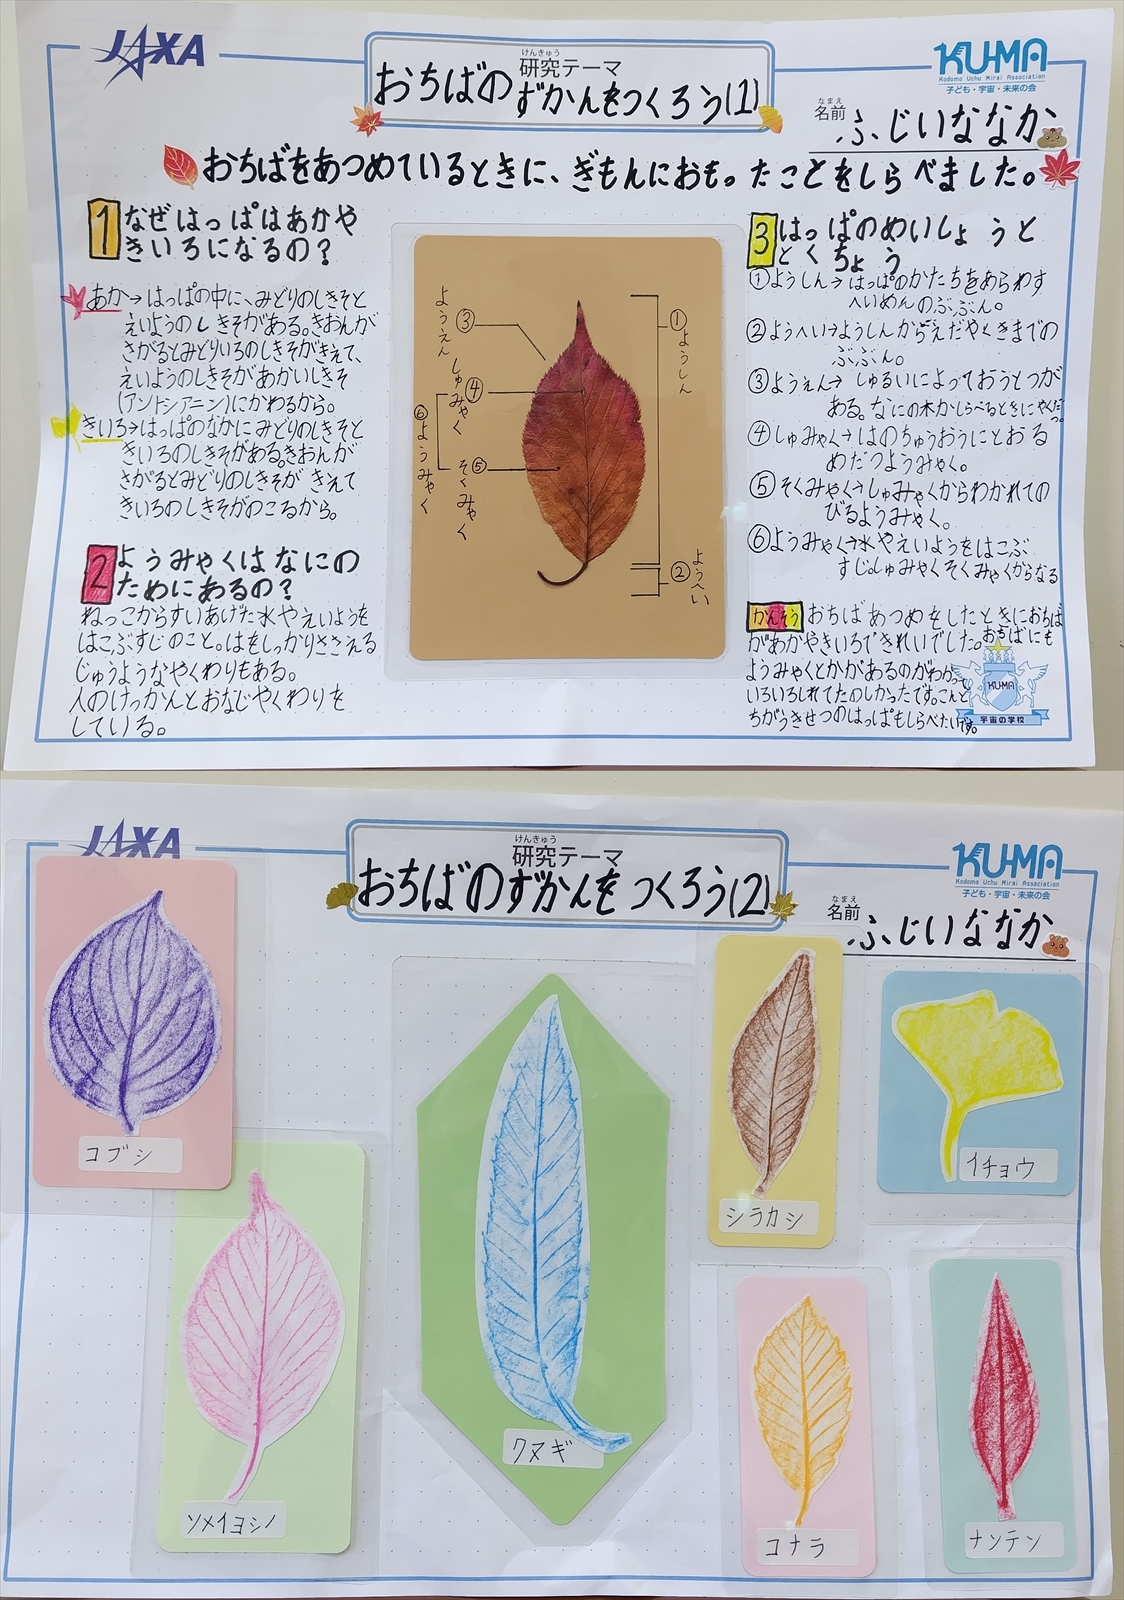 JAXA
けんきゅう
研究テーマ
おちばの
ずかんをつくろう(1)
KU-MA
Kodomo Uchu Mirai Association
子ども・宇宙・未来の会
なまえ
名前
ふじいななか
おちばをあつめているときに、ぎもんにおもったことをしらべました。
1 なぜはっぱはあかや
きいろになるの?
あか→はっぱの中に、みどりのしきそと
えいようのしきそがある。きおんが
さがるとみどりいろのしきそがきえて、
えいようのしきそがあかいしきそ
(アントシアニン)にかわるから。
きいろ→はっぱのなかにみどりのしきそと
きいろのしきそがある。きおんが
さがるとみどりのしきそがきえて
きいろのしきそがのこるから。
2 ようみゃくはなにの
ためにあるの?
ねっこからすいあげた水やえいようを
はこぶすじのこと。はをしっかりささえる
じゅうようなやくわりもある。
人のけっかんとおなじやくわりを
している。
③ようえん
④しゅみゃく
⑥ようみゃく
⑤そくみゃく
①ようしん
②ようへい
3 はっぱのめいしょうと
とくちょう
①ようしん→はっぱのかたちをあらわす
へいめんのぶぶん。
②ようへい→ようしんからえだやくきまでの
ぶぶん。
③ようえん→しゅるいによっておうとつが
ある。なにの木かしらべるときにやくだつ。
④しゅみゃく→はのちゅうおうにとおる
めだつようみゃく。
⑤そくみゃく→しゅみゃくからわかれての
びるようみゃく。
⑥ようみゃく→水やえいようをはこぶ
すじ。しゅみゃくそくみゃくからなる
かんそう おちばあつめをしたときにおちば
があかやきいろできれいでした。おちばにも
ようみゃくとかがあるのがわかって
いろいろしれてたのしかったです。こんど
ちがうきせつのはっぱもしらべたいです。
KU-MA
宇宙の学校
JAXA
けんきゅう
研究テーマ
おちばのずかんをつくろう(2)
KU-MA
Kodomo Uchu Mirai Association
子ども・宇宙・未来の会
なまえ
名前
ふじいななか
コブシ
ソメイヨシノ
クヌギ
シラカシ
イチョウ
コナラ
ナンテン